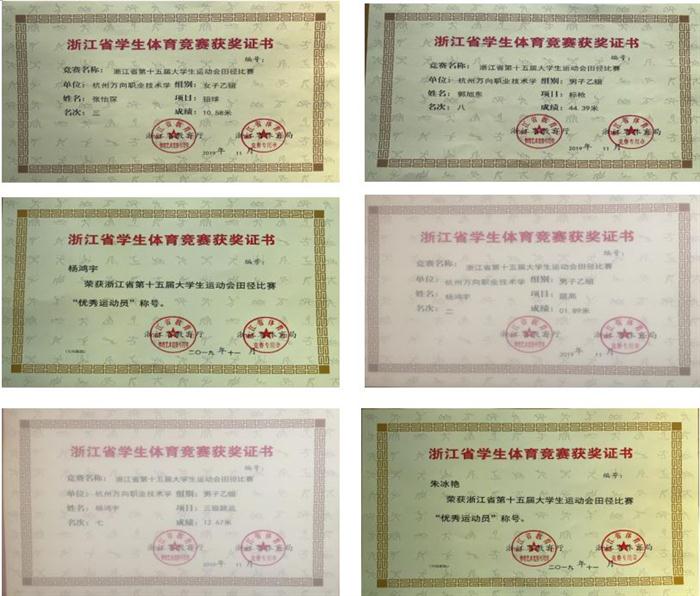 浙江省学生体育竞赛获奖证书
编号:
竞赛名称: 浙江省第十五届大学生运动会田径比赛
单位: 杭州万向职业技术学 组别: 女子乙组
姓名: 张怡琛 项目: 铅球
名次: 三 成绩: 10.58米
2019 年 11 月
浙江省学生体育竞赛获奖证书
编号:
竞赛名称: 浙江省第十五届大学生运动会田径比赛
单位: 杭州万向职业技术学 组别: 男子乙组
姓名: 郭旭东 项目: 标枪
名次: 八 成绩: 44.39米
2019 年 11 月
浙江省学生体育竞赛获奖证书
编号:
杨鸿宇
荣获浙江省第十五届大学生运动会田径比赛
“优秀运动员”称号。
二〇一九 年 十一 月
浙江省学生体育竞赛获奖证书
编号:
竞赛名称: 浙江省第十五届大学生运动会田径比赛
单位: 杭州万向职业技术学 组别: 男子乙组
姓名: 杨鸿宇 项目: 跳高
名次: 二 成绩: 01.89米
2019 年 11 月
浙江省学生体育竞赛获奖证书
编号:
竞赛名称: 浙江省第十五届大学生运动会田径比赛
单位: 杭州万向职业技术学 组别: 男子乙组
姓名: 杨鸿宇 项目: 三级跳远
名次: 七 成绩: 12.67米
2019 年 11 月
浙江省学生体育竞赛获奖证书
编号:
朱冰艳
荣获浙江省第十五届大学生运动会田径比赛
“优秀运动员”称号。
二〇一九 年 十一 月